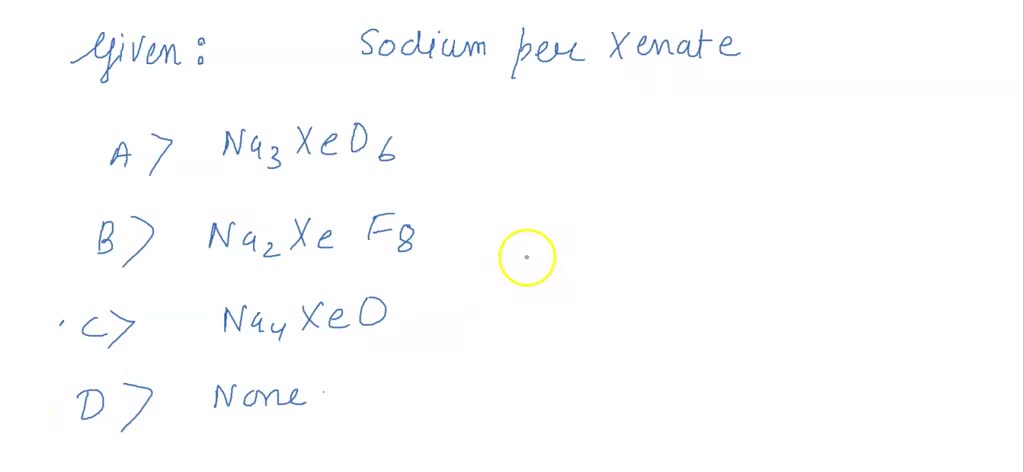 Given: Sodium per Xenate
A> Na₃XeO₆
B> Na₂Xe F₈
C> Na₄XeO
D> None